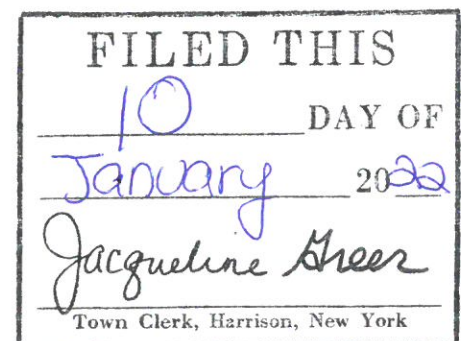 FILED THIS
10 DAY OF
January 2022
Jacqueline Greer
Town Clerk, Harrison, New York